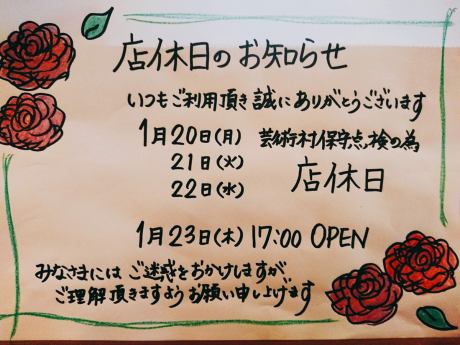 店休日のお知らせ
いつもご利用頂き誠にありがとうございます
1月20日(月) 芸術村保守点検の為
21日(火)
22日(水) 店休日
1月23日(木) 17:00 OPEN
みなさまには ご迷惑をおかけしますが、
ご理解頂きますようお願い申し上げます